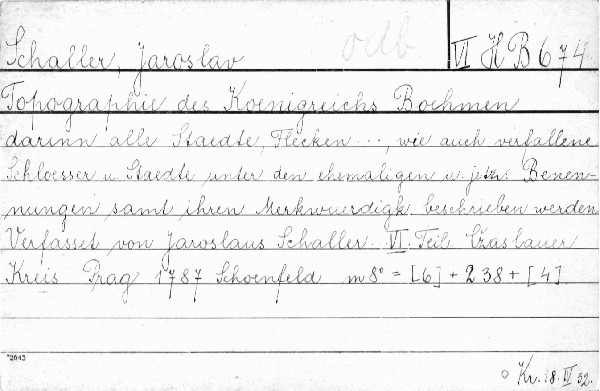 Schaller, Jaroslav odb VI H B 674
Topographie des Koenigreichs Boehmen
darinn alle Staedte, Flecken ..., wie auch verfallene
Schloesser u. Staedte unter den ehemaligen u. jetz. Benen-
nungen samt ihren Merkwuerdigk. beschrieben werden
Verfasset von Jaroslaus Schaller. VI. Teil. Czaslauer
Kreis Prag 1787 Schoenfeld m 8° = [6] + 238 + [4].
*2643
Kr. 18. IV 32.